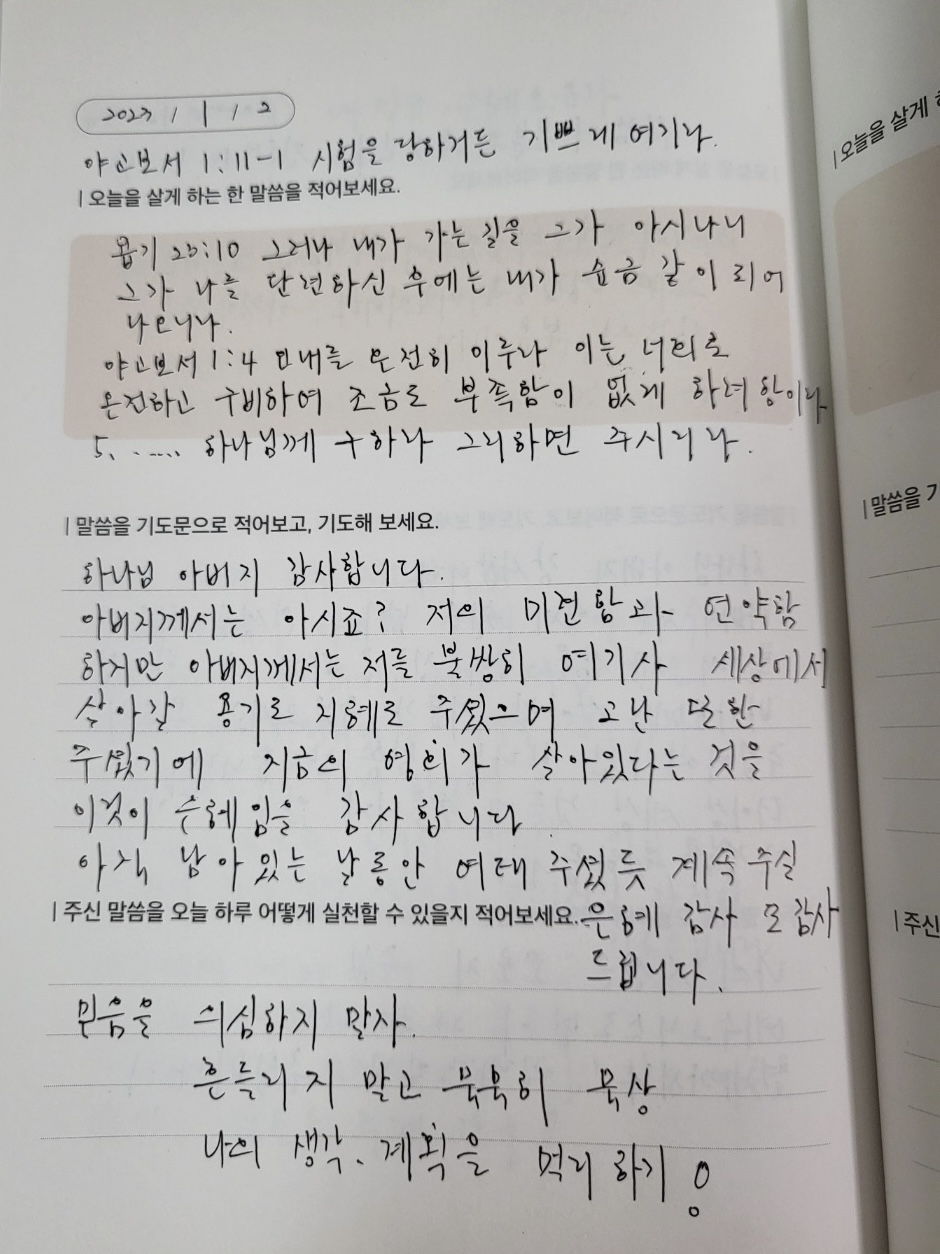 2023 / 1 / 2
야고보서 1:11-1 시험을 당하거든 기쁘게 여기라.
| 오늘을 살게 하는 한 말씀을 적어보세요.
욥기 23:10 그러나 내가 가는 길을 그가 아시나니
그가 나를 단련하신 후에는 내가 순금 같이 되어
나오니라.
야고보서 1:4 인내를 온전히 이루라 이는 너희로
온전하고 구비하여 조금도 부족함이 없게 하려 함이라
5. ..... 하나님께 구하라 그리하면 주시리라.
| 말씀을 기도문으로 적어보고, 기도해 보세요.
하나님 아버지 감사합니다.
아버지께서는 아시죠? 저의 미련함과 연약함
하지만 아버지께서는 저를 불쌍히 여기사 세상에서
살아갈 용기로 지혜로 주셨으며 고난 또한
주셨기에 지금의 영희가 살아있다는 것을
이것이 은혜임을 감사합니다.
아직 남아있는 날동안 여태 주셨듯 계속 주실
은혜 감사 또 감사
드립니다.
| 주신 말씀을 오늘 하루 어떻게 실천할 수 있을지 적어보세요.
믿음을 의심하지 말자.
흔들리지 말고 묵묵히 묵상
나의 생각. 계획을 멀리 하기!
| 오늘을 살게
| 말씀을 기
| 주신